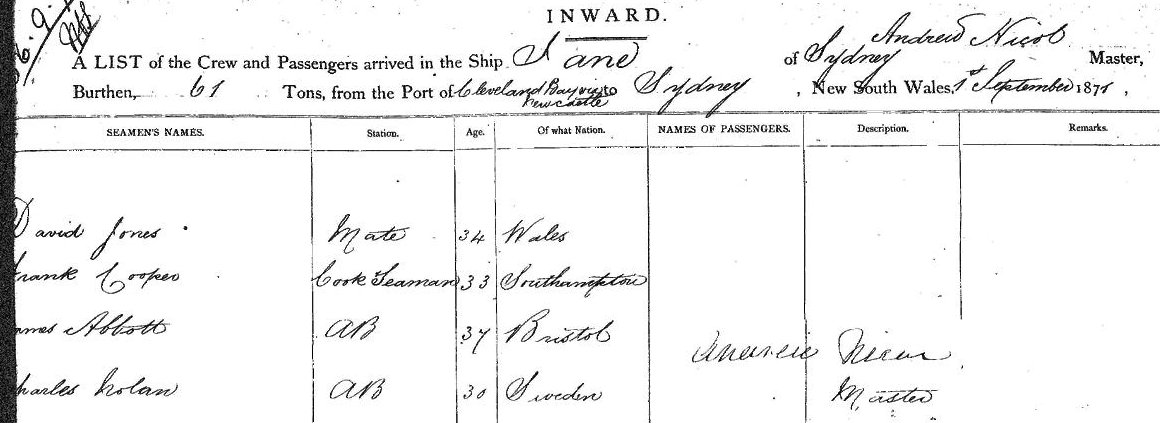 INWARD.
A LIST of the Crew and Passengers arrived in the Ship Jane of Sydney Andrew Nicol Master,
Burthen, 61 Tons, from the Port of Cleveland Bay via to Sydney, New South Wales, 1st September 187
Newcastle
SEAMEN'S NAMES. Station. Age. Of what Nation. NAMES OF PASSENGERS. Description. Remarks.
David Jones Mate 34 Wales
Frank Cooper Cook Seaman 33 Southampton
ames Abbott AB 37 Bristol
Andrew Nicol
harles Nolan AB 30 Sweden Master